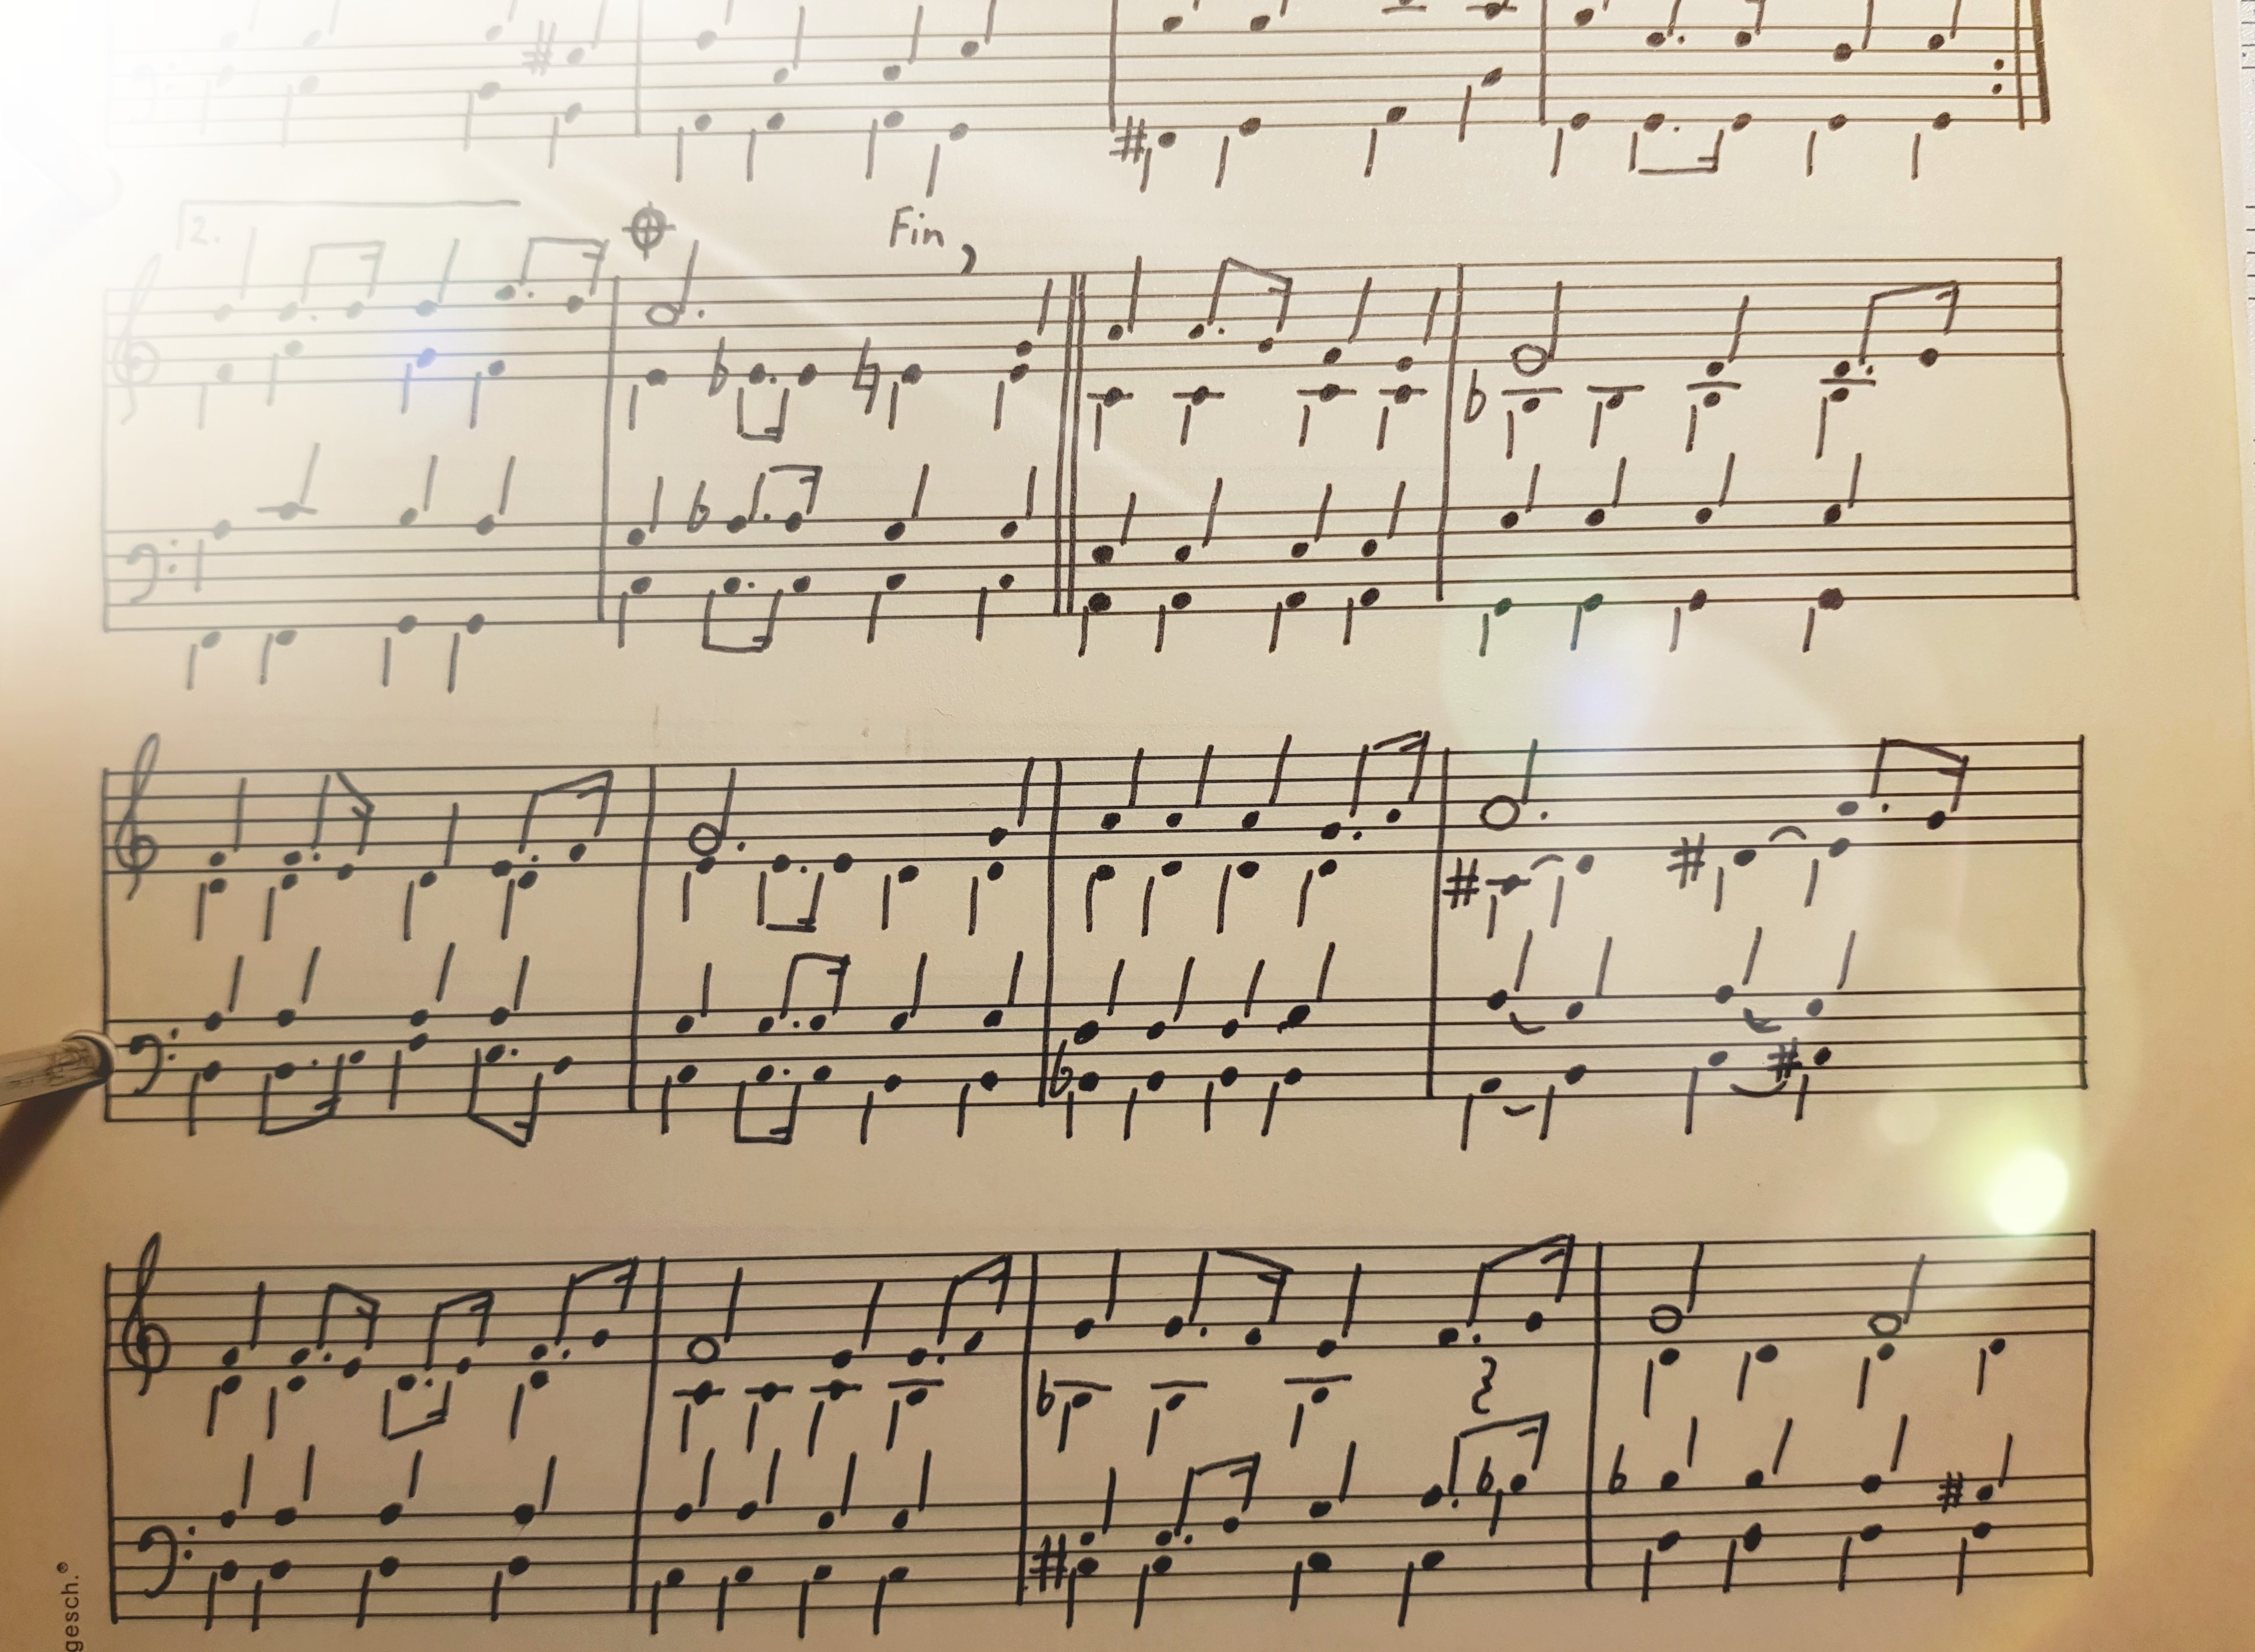 2.
Fin
gesch.®